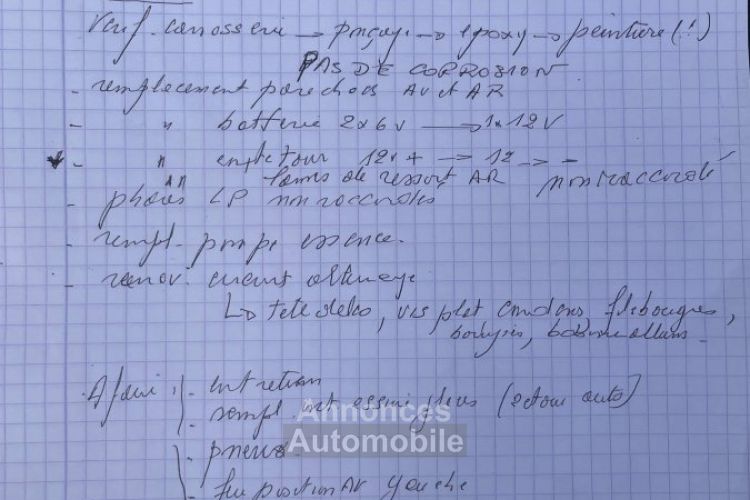 Verif. carrosserie → ponçage → epoxy → peinture (!)
PAS DE CORROSION
- remplacement pare chocs AV et AR
- " batterie 2x6v → 1x12V
- " 12v + → 12 → - non raccordé
lames de ressort AR
- phares AR LP non raccordés
- rempl. pompe essence.
- renov. circuit allumage
↳ tete delco, vis plat condens, fil bougies,
bougies, bobine allum.
A faire : - entretien
- rempl. int essuie glaces (retour auto)
- pneus.
- feu position AV gauche
Annonces
Automobile